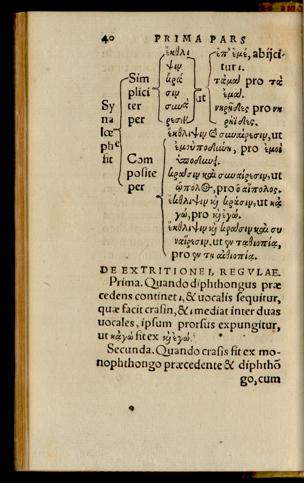 40 PRIMA PARS
Synalœphe fit
Simpliciter per
ἔκθλιψιν
κρᾶσιν
συναίρεσιν
ut
ἐπ' ἐμέ, abijcitur ι.
τἀμὰ pro τὰ ἐμά.
pro
Composite per
ἔκθλιψιν & συναίρεσιν, ut
pro ἐμοὶ
κρᾶσιν καὶ συναίρεσιν, ut
ᾡπόλος, pro ὁ αἰπόλος.
ἔκθλιψιν καὶ κρᾶσιν, ut κἀγώ, pro καὶ ἐγώ.
ἔκθλιψιν καὶ κρᾶσιν καὶ συναίρεσιν, ut
pro
DE EXTRITIONE ι, REGVLAE.
Prima. Quando diphthongus præ
cedens continet ι, & uocalis sequitur,
quæ facit crasin, & ι mediat inter duas
uocales, ipsum prorsus expungitur,
ut κἀγώ fit ex καὶ ἐγώ.
Secunda. Quando crasis fit ex mo-
nophthongo præcedente & diphthõ
go, cum